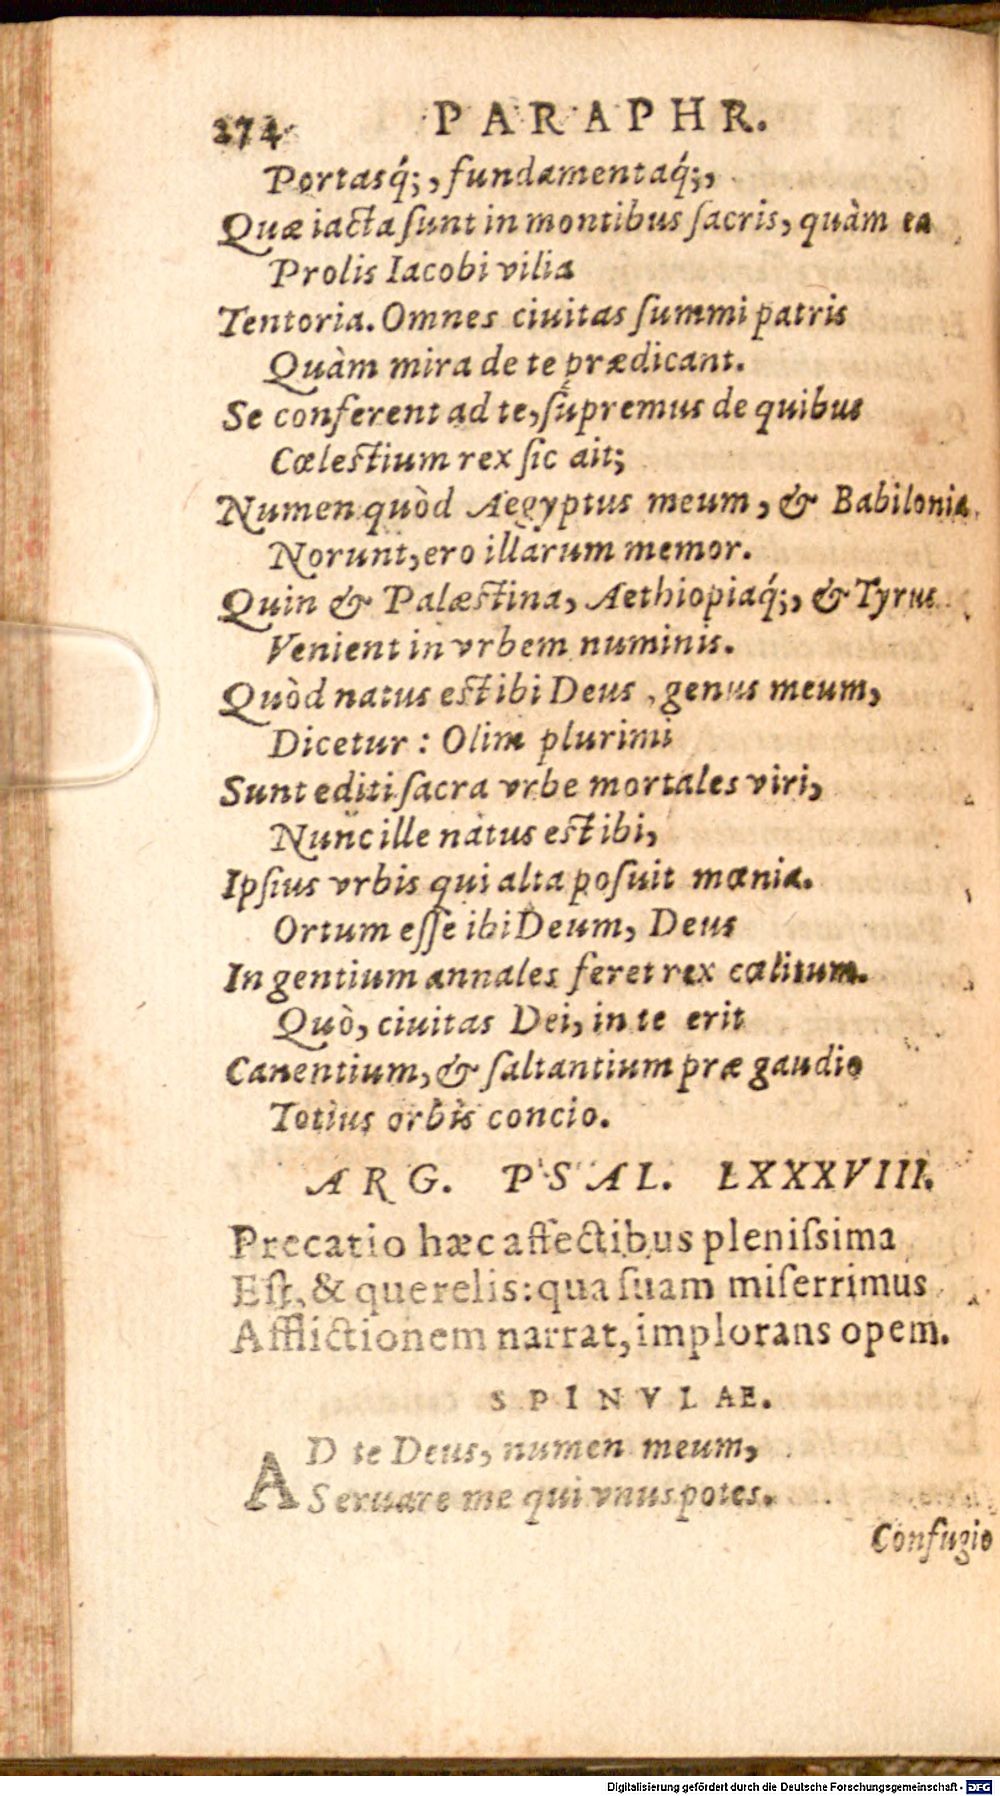 274 PARAPHR.
Portasq́;, fundamentaq́;,
Quæ iacta ſunt in montibus ſacris, quàm ea
Prolis Iacobi vilia
Tentoria. Omnes ciuitas ſummi patris
Quàm mira de te prædicant.
Se conferent ad te, ſupremus de quibus
Cœleſtium rex ſic ait;
Numen quòd Aegyptus meum, & Babilonia
Norunt, ero illarum memor.
Quin & Palæſtina, Aethiopiaq́;, & Tyrus
Venient in vrbem numinis.
Quòd natus eſt ibi Deus, genus meum,
Dicetur: Olim plurimi
Sunt editi ſacra vrbe mortales viri,
Nunc ille natus eſt ibi,
Ipſius vrbis qui alta poſuit mœnia.
Ortum eſſe ibi Deum, Deus
In gentium annales feret rex cælitum.
Quò, ciuitas Dei, in te erit
Canentium, & ſaltantium præ gaudio
Totius orbis concio.
ARG. PSAL. LXXXVIII.
Precatio hæc affectibus pleniſsima
Eſt, & querelis: qua ſuam miſerrimus
Afflictionem narrat, implorans opem.
SPINVLAE.
AD te Deus, numen meum,
Seruare me qui vnus potes.
Confugio
Digitalisierung gefördert durch die Deutsche Forschungsgemeinschaft - DFG